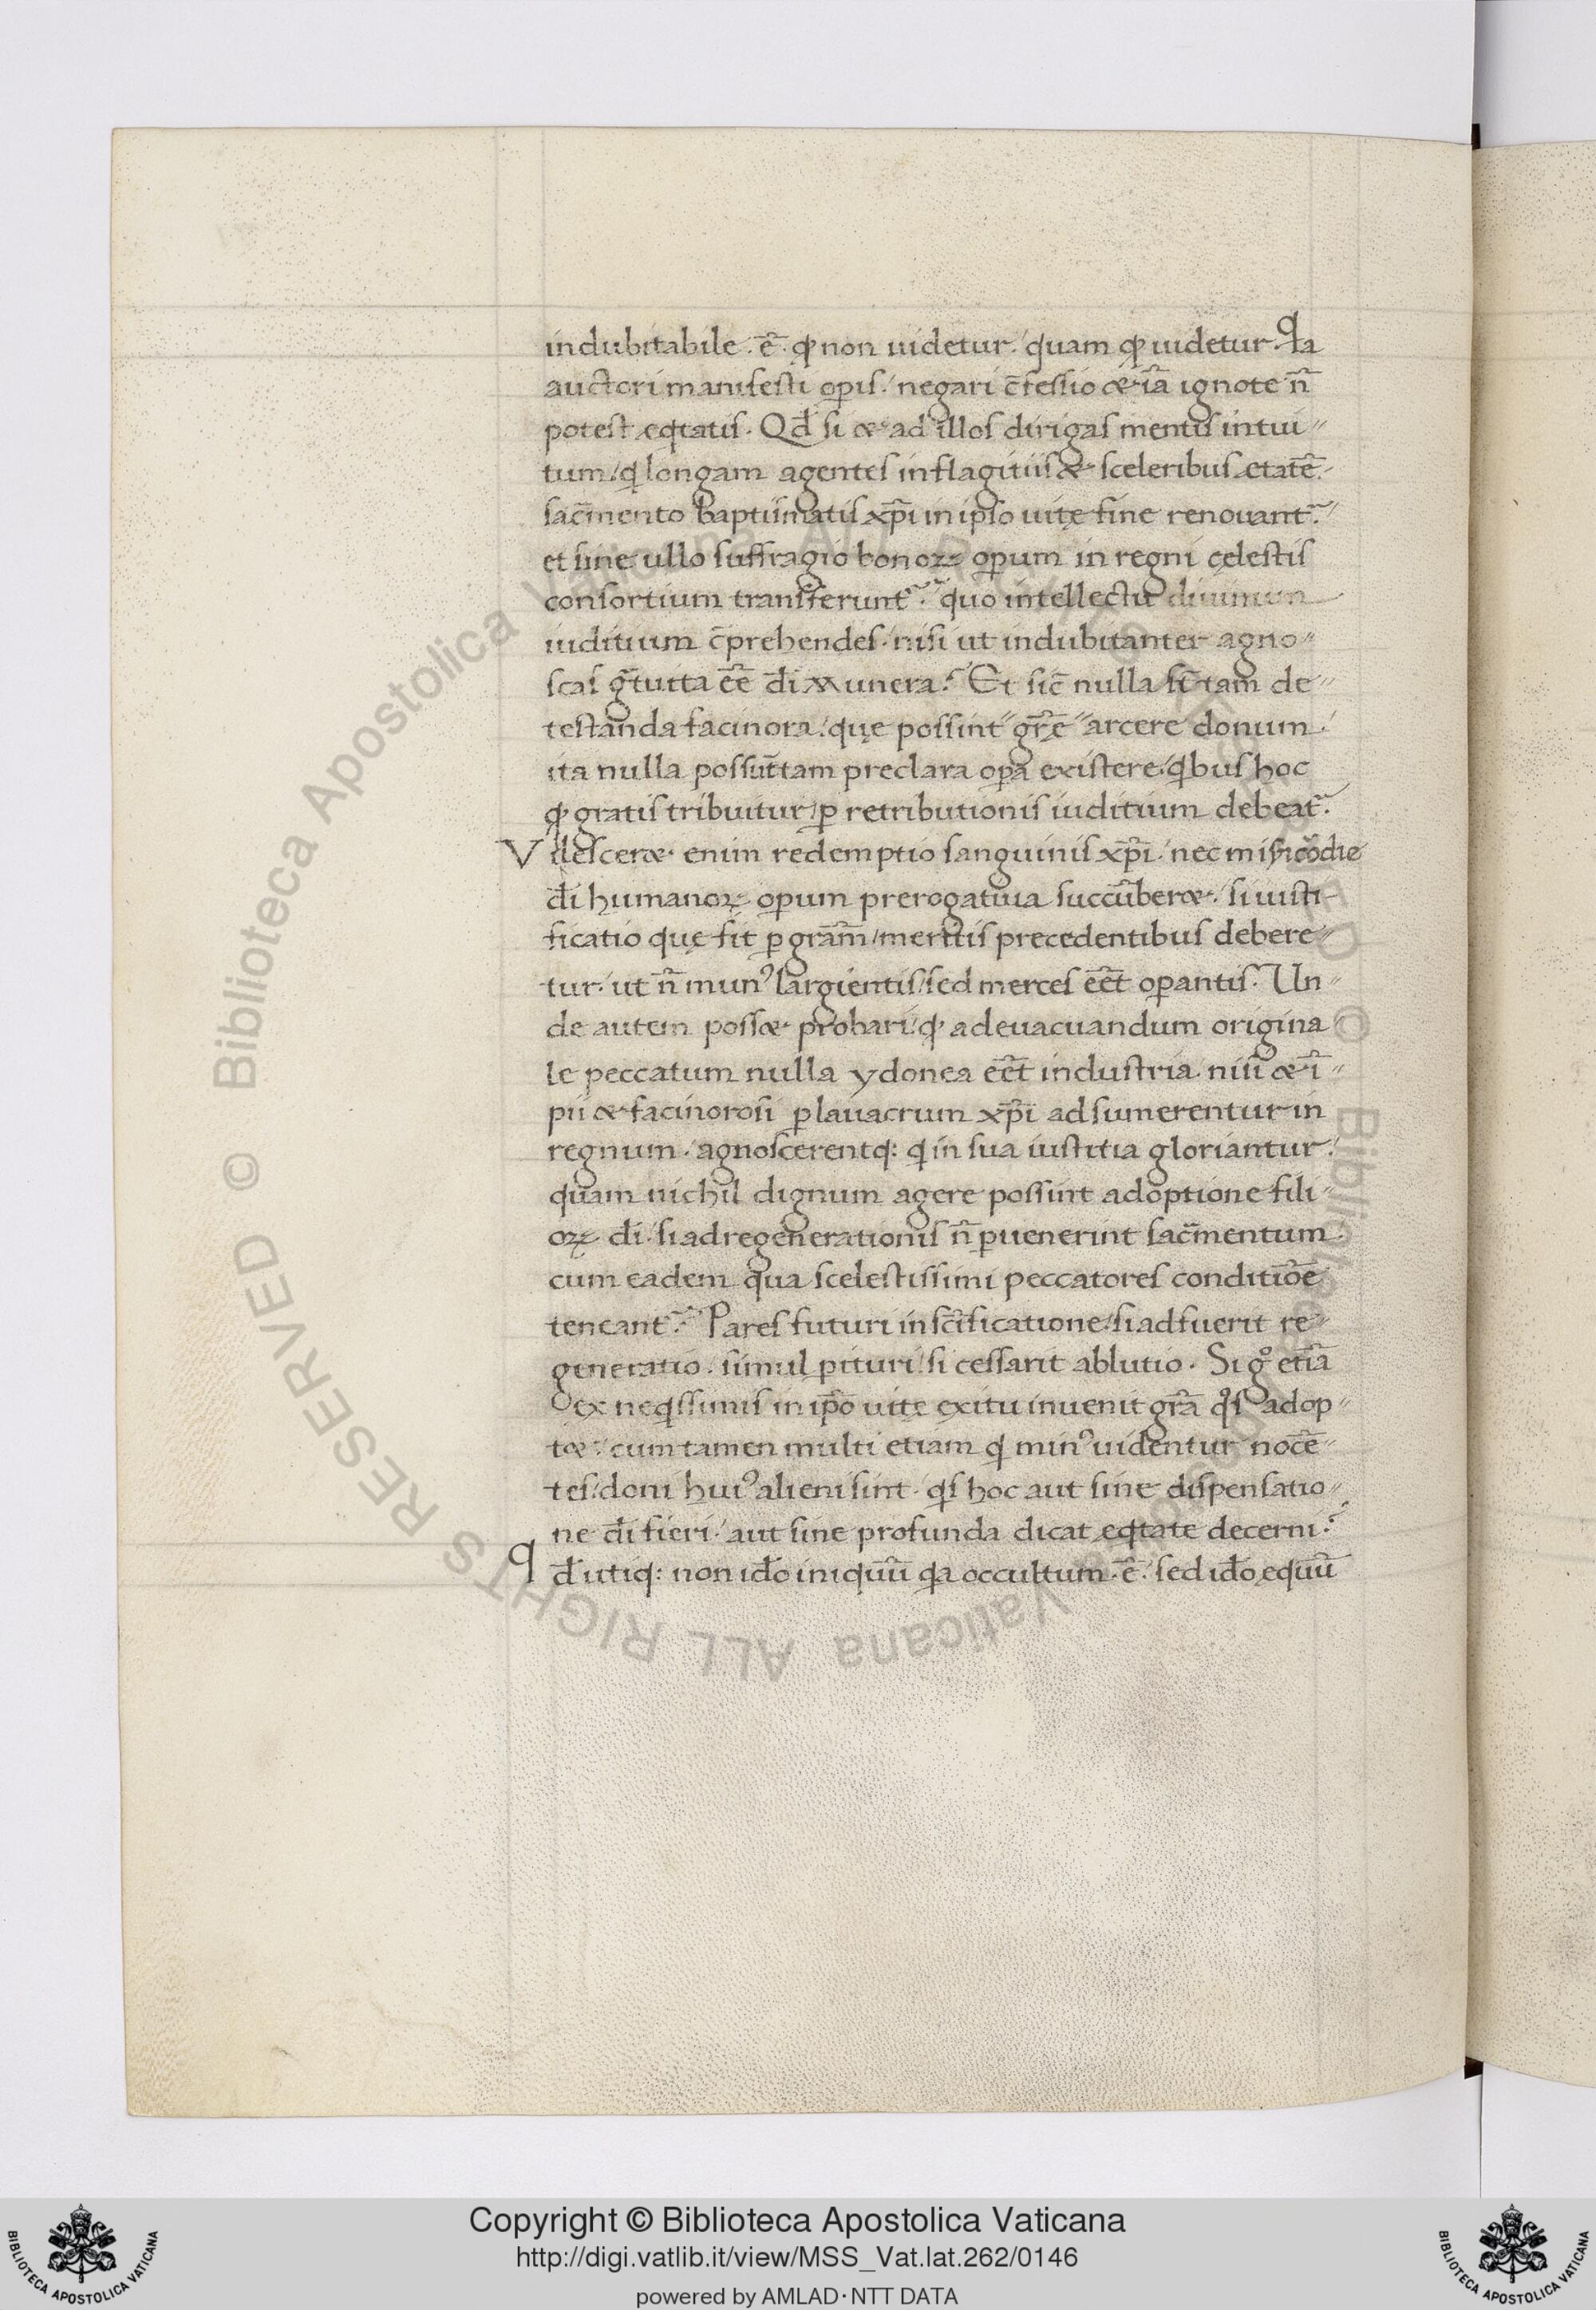 indubitabile .ē. qđ non uidetur. quam qđ uidetur. qa
auctori manifesti opis. negari c̄fessio & iā ignote n̄
potest eqtatis. Qđ si & ad illos dirigas mentis intui
tum qi longam agentes in flagitiis & sceleribus etatē.
sac̄mento baptismatis xp̄i in ipso uitę fine renouant᷑.
et sine ullo suffragio bonoꝝ opum in regni cęlestis
consortium transferunt᷑. quo intellectu diuinum
iuditium c̄prehendes. nisi ut indubitanter agno
scas g̃tuita ēe đi munera? Et sic̄ nulla st̄ tam de
testanda facinora. quę possint gr̄ę arcere donum.
ita nulla possūt tam preclara opa existere. qibus hoc
qđ gratis tribuitur ꝑ retributionis iuditium debeat᷑.
Vilesceret enim redemptio sanguinis xp̄i. nec misicōdię
đi humanoꝝ opum prerogatiua succūberet. si iusti
ficatio quę fit ꝑ gram̄ meritis precedentibus debere
tur. ut n̄ munꝰ largientis sed merces ēet opantis. Un
de autem posset probari qđ ad euacuandum origina
le peccatum nulla ydonea ēet industria nisi & ī
pii & facinorosi ꝑ lauacrum xp̄i adsumerentur in
regnum. agnoscerentq: qi in sua iustitia gloriantur.
quam nichil dignum agere possint adoptione fili
oꝝ đi. si ad regenerationis n̄ ꝑuenerint sac̄mentum
cum eadem qua scelestissimi peccatores conditiōe
teneant᷑. Pares futuri in sc̄ificatione si adfuerit re
generatio. simul ꝑituri si cessarit ablutio. Si gͦ etiā
ex neqissimis in ip̄o uitę exitu inuenit gr̄a qͦs adop
tet. cum tamen multi etiam qi minꝰ uidentur nocē
tes. doni huiꝰ alieni sint. qis hoc aut sine dispensatio
ne đi fieri. aut sine profunda dicat eqitate decerni?
qđ utiq: non iđo iniquū qa occultum .ē. sed iđo equū
Copyright © Biblioteca Apostolica Vaticana
http://digi.vatlib.it/view/MSS_Vat.lat.262/0146
powered by AMLAD·NTT DATA